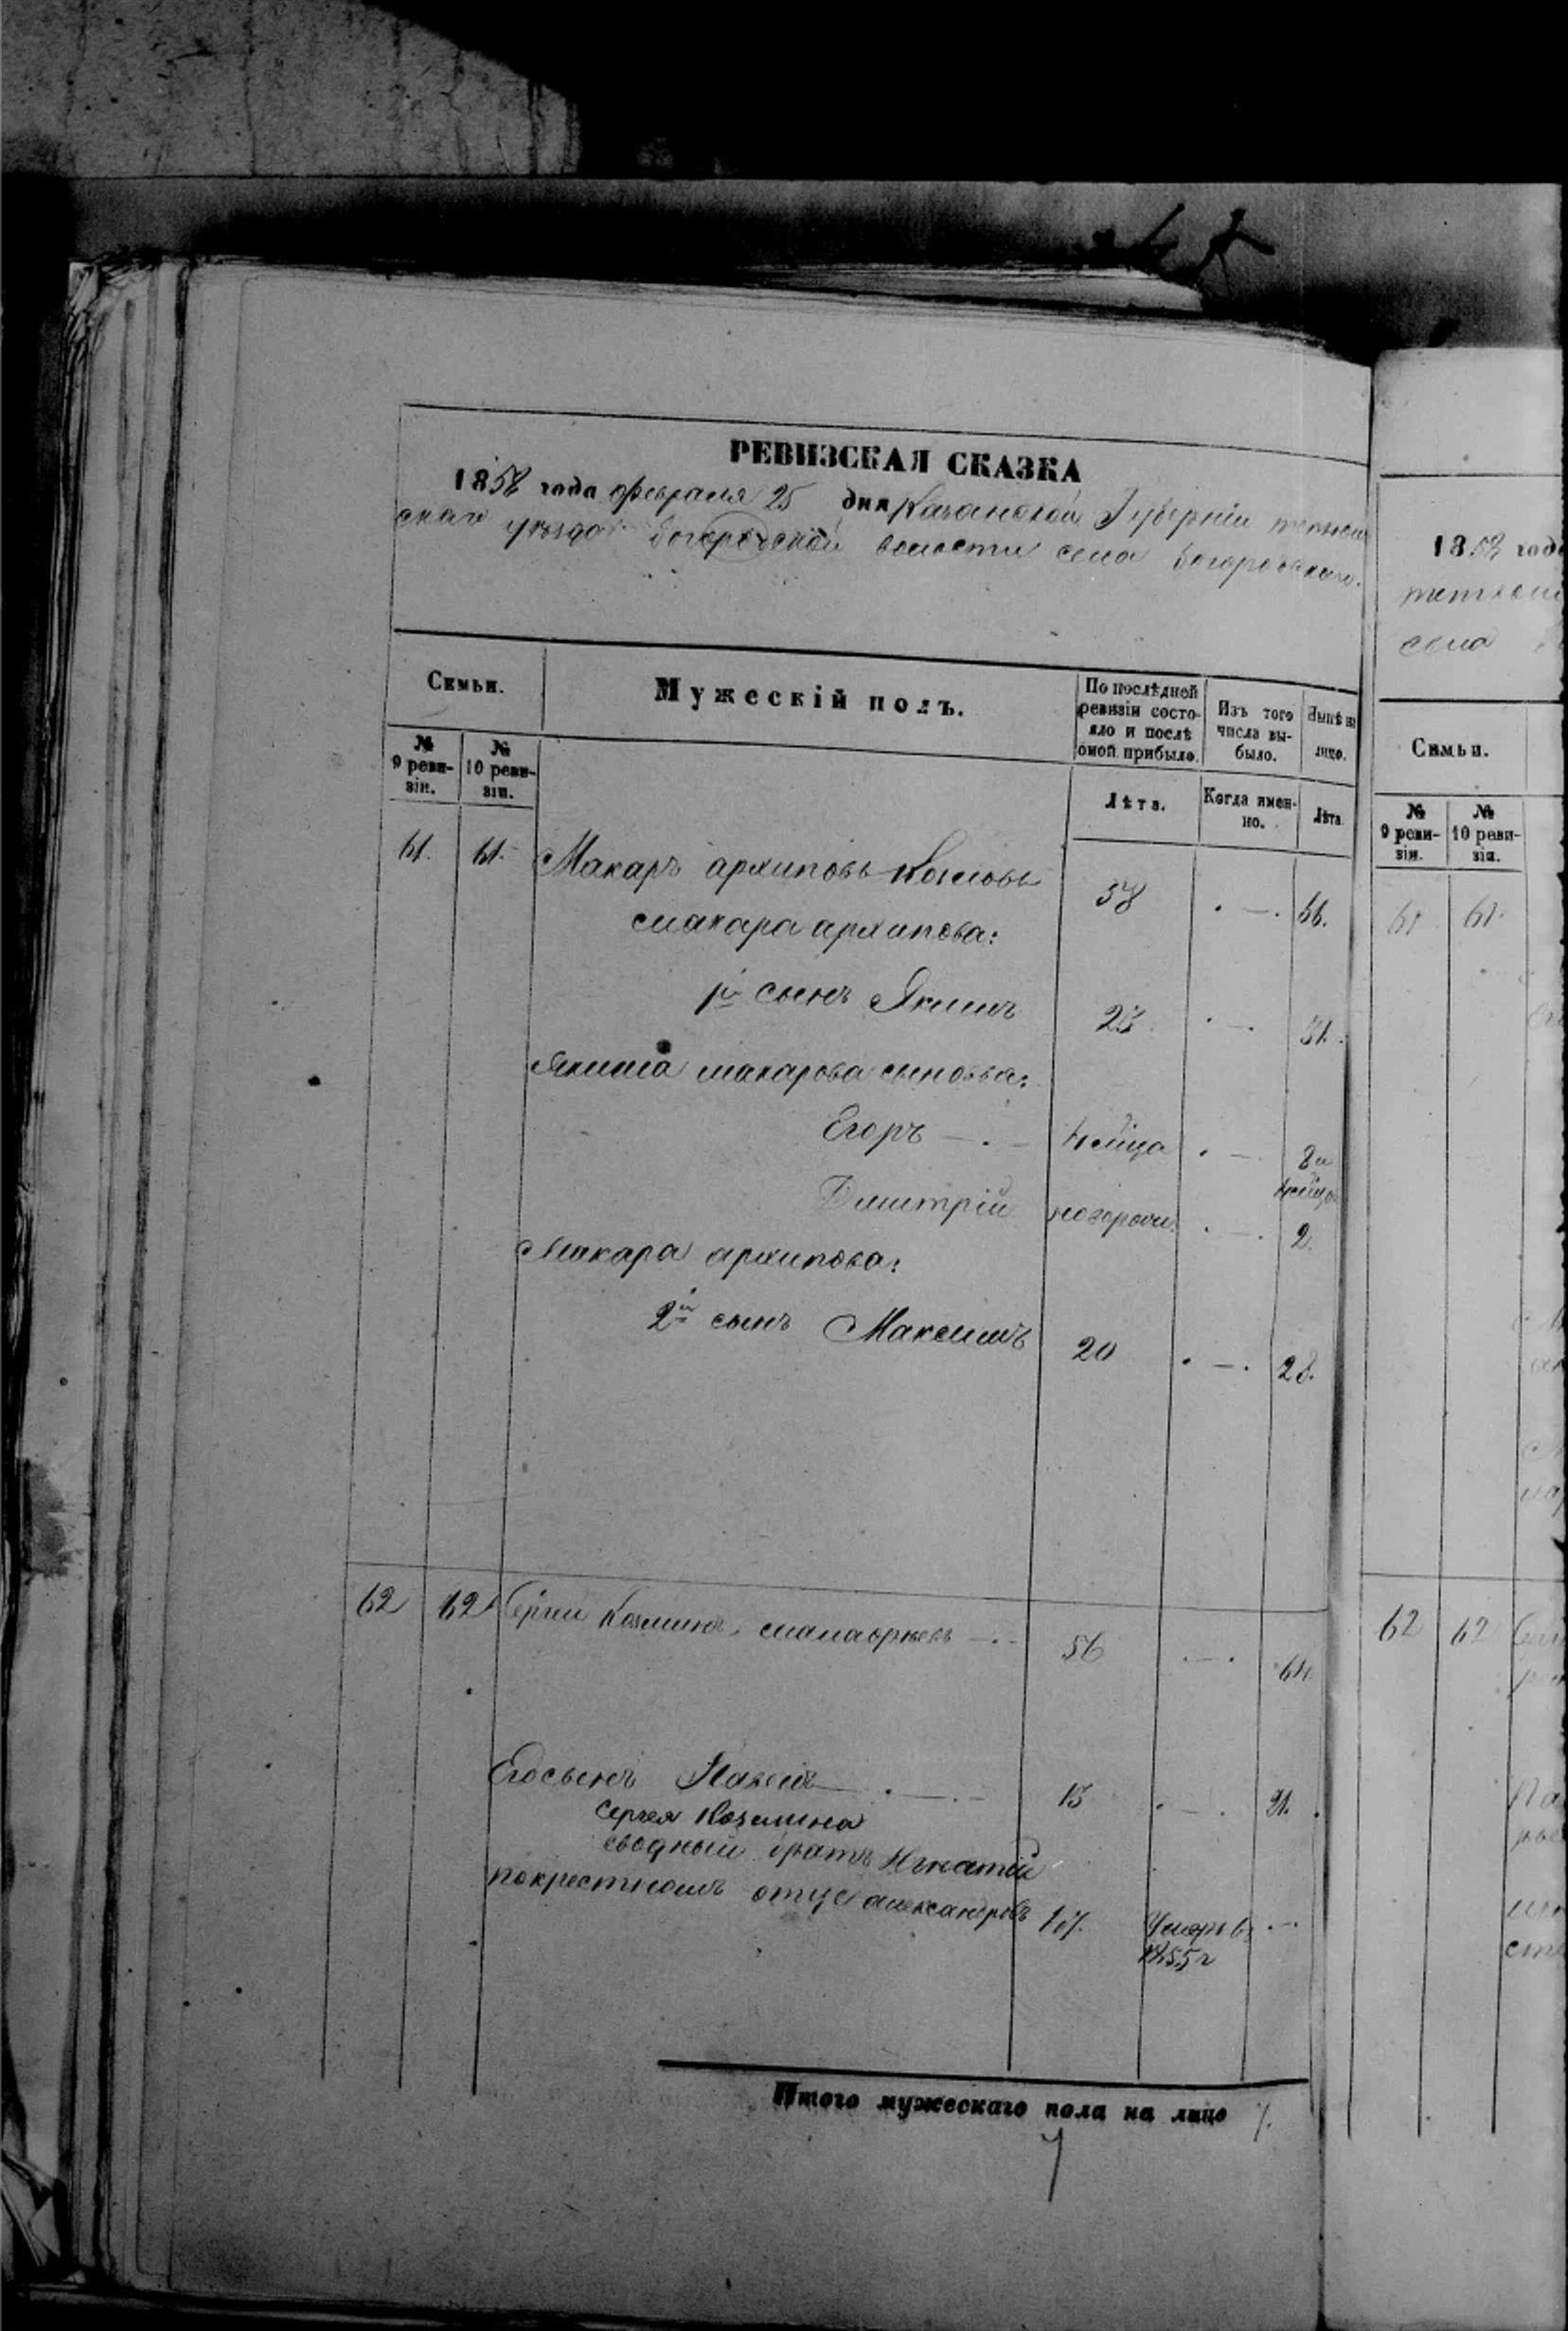 РЕВИЗСКАЯ СКАЗКА
1858 года февраля 25 дня Казанской Губерніи тетюш
скаго уѣзда Богородской волости села Богородскаго.
Семьи.
Мужескій полъ.
По послѣдней ревизіи состояло и послѣ оной прибыло.
Изъ того числа выбыло.
Нынѣ на лицо.
№ 9 ревизіи.
№ 10 ревизіи.
Лѣта.
Когда именно.
Лѣта.
61. 61. Макаръ архиповъ Козловъ 58 . — . 66.
макара архипова:
1й сынъ Якимъ 23 . — . 31.
Якима макарова сыновья:
Егоръ — . — 4 мѣца . — 8 и
4 мѣца
Дмитрій новорожд. . — . 2.
Макара архипова:
2й сынъ Максимъ 20 . — . 28.
62 62 Сергей Козминъ — . — 56 . — . 64.
Его сынъ Павелъ — . — . — 13 . — . 21.
Сергея Козмина
сводный братъ Игнатій
по крестномъ отце александровъ Умеръ въ . —
1855 г
Итого мужескаго пола на лицо 7.
7
1858 года
тетюш
села
Семьи.
№ 9 ревизіи.
№ 10 ревизіи.
61 61.
62 62